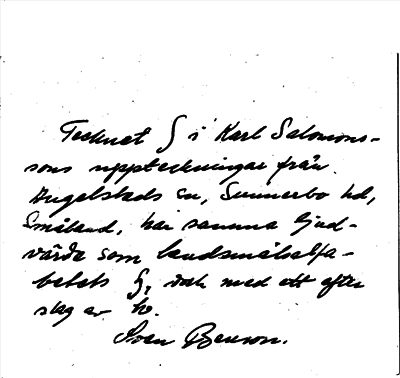 Tecknet ʃ i Karl Salomons-
sons uppteckningar från
Angelstads sn, Sunnerbo hd,
Småland, har samma ljud-
värde som landsmålsalfa-
betets ʃ, dock med ett efter
slag av
Sven Benson.